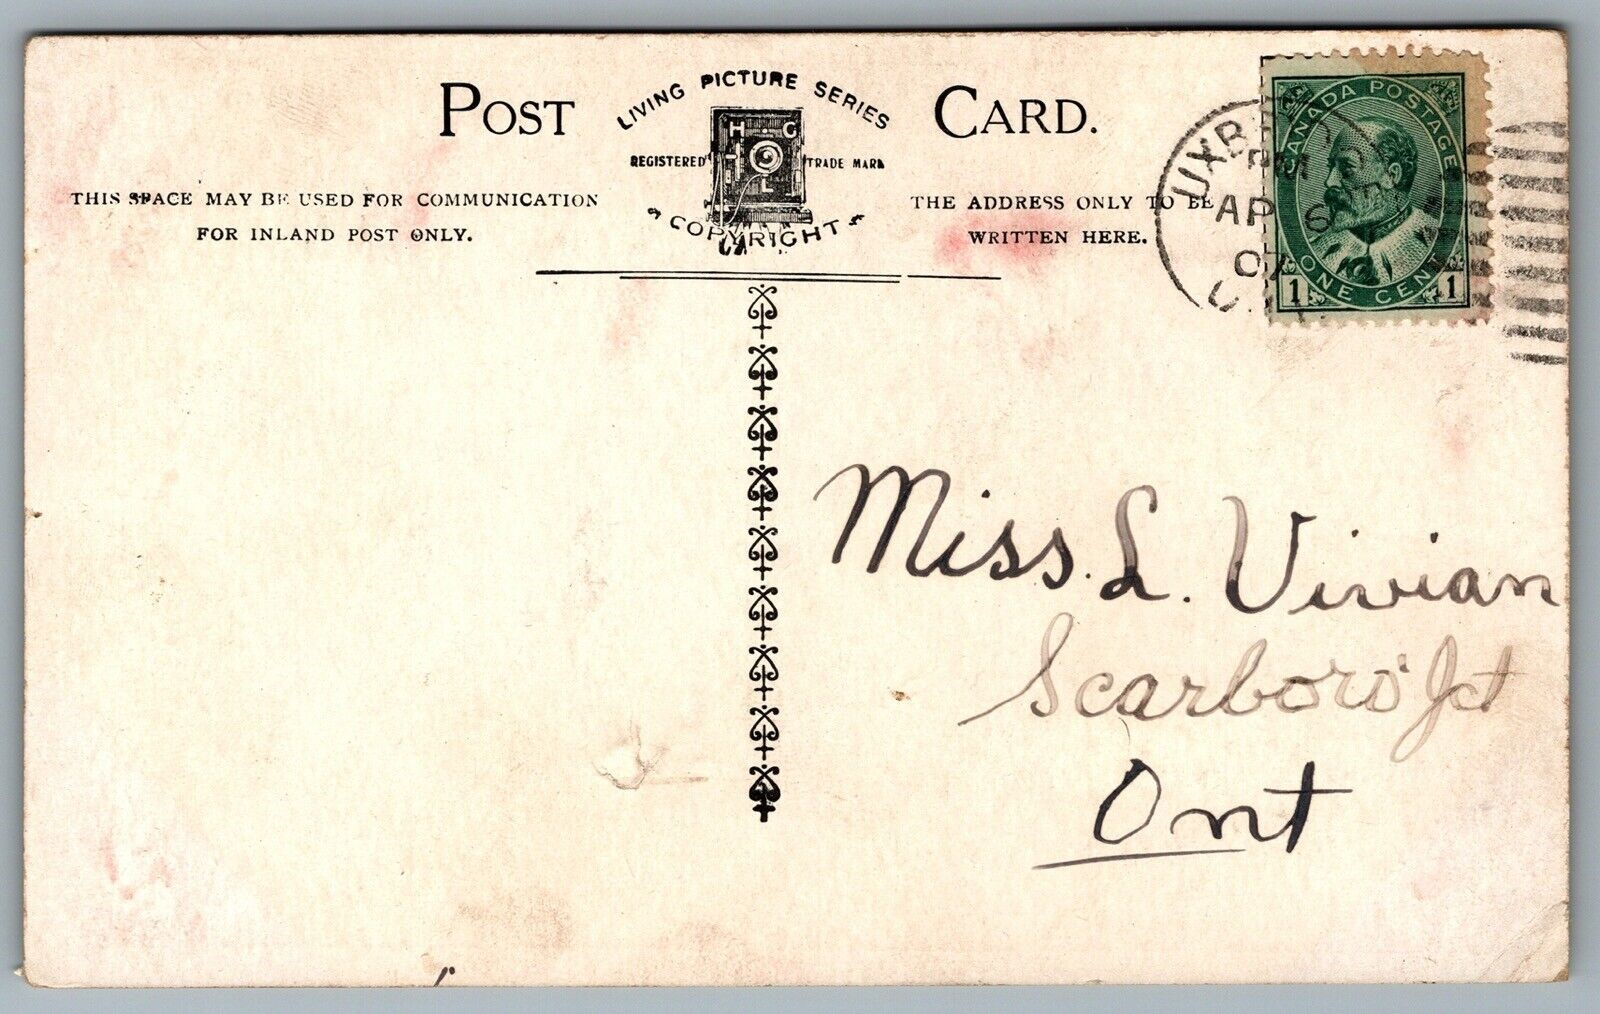 POST CARD.
LIVING PICTURE SERIES
H G
L
REGISTERED TRADE MARK
COPYRIGHT
THIS SPACE MAY BE USED FOR COMMUNICATION
FOR INLAND POST ONLY.
THE ADDRESS ONLY TO BE
WRITTEN HERE.
PM
AP 6
07
CANADA POSTAGE
ONE CENT
1 1
Miss. L. Vivian
Scarboro Jct
Ont